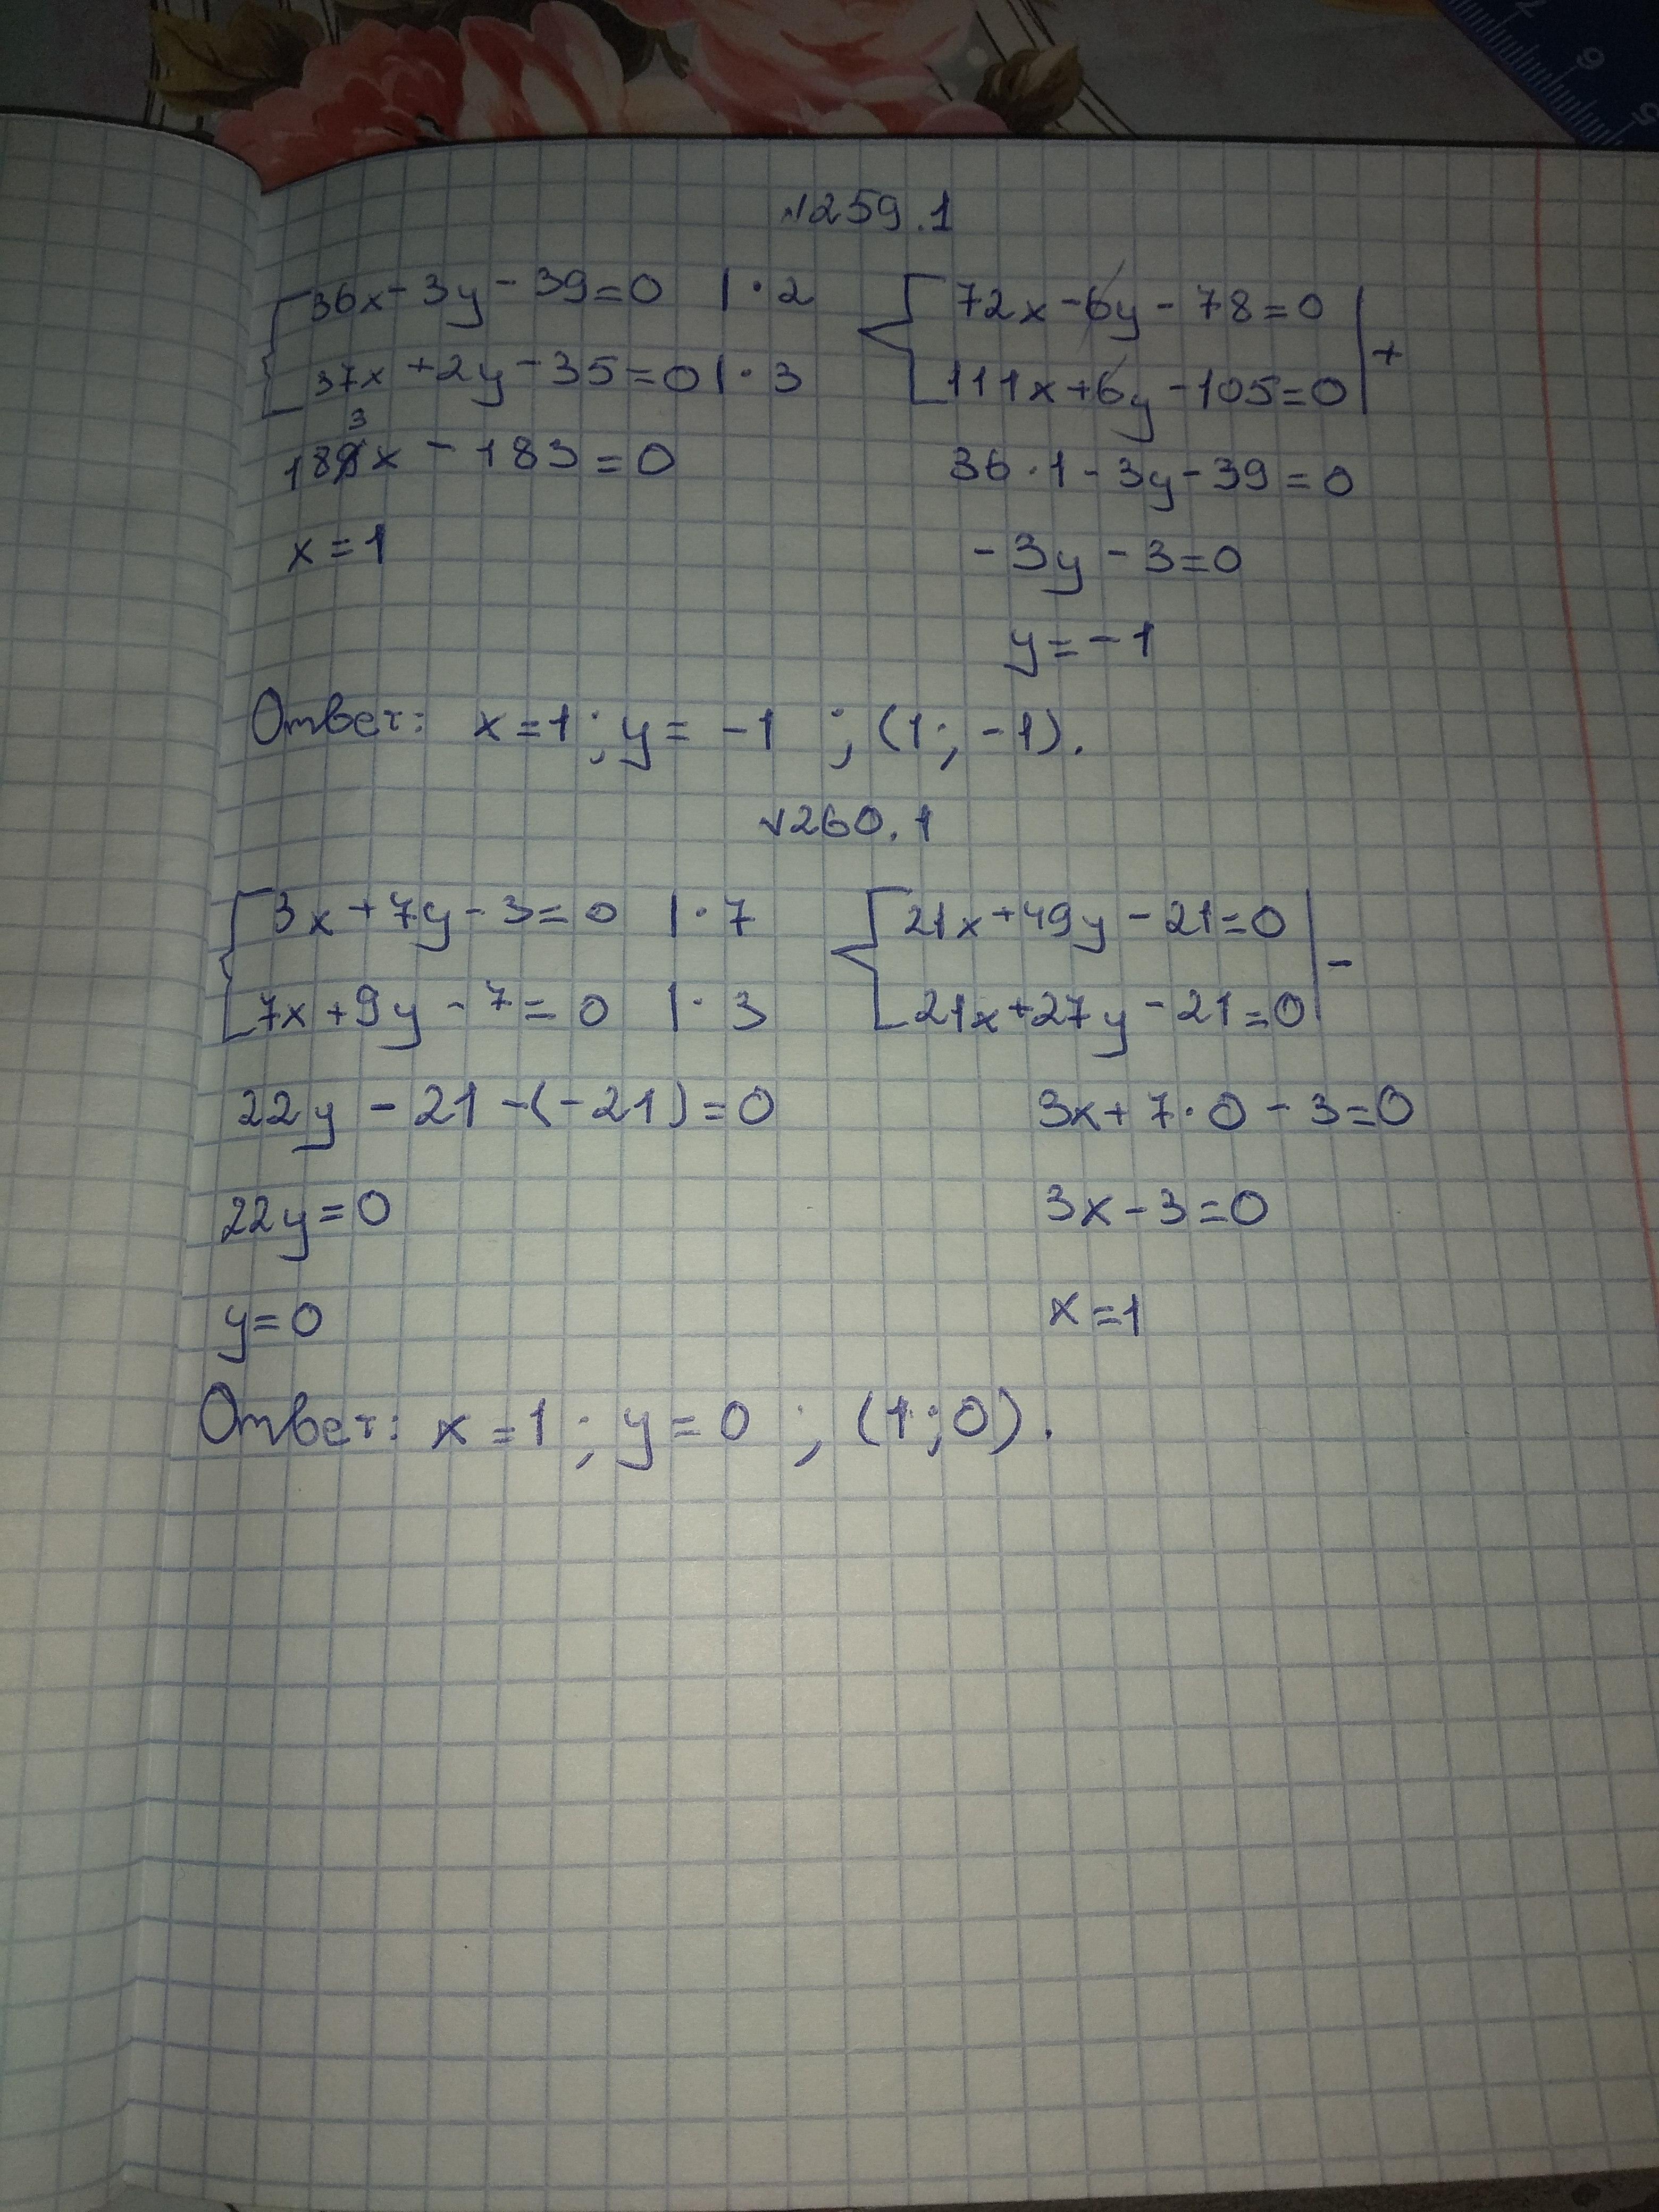 №259.1
36x - 3y - 39 = 0 | · 2
37x + 2y - 35 = 0 | · 3
72x - 6y - 78 = 0
111x + 6y - 105 = 0 | +
183x - 183 = 0
x = 1
36 · 1 - 3y - 39 = 0
- 3y - 3 = 0
y = - 1
Ответ: x = 1 ; y = - 1 ; (1 ; - 1).
№260.1
3x + 7y - 3 = 0 | · 7
7x + 9y - 7 = 0 | · 3
21x + 49y - 21 = 0
21x + 27y - 21 = 0 | -
22y - 21 - (- 21) = 0
22y = 0
y = 0
3x + 7 · 0 - 3 = 0
3x - 3 = 0
x = 1
Ответ: x = 1 ; y = 0 ; (1 ; 0).